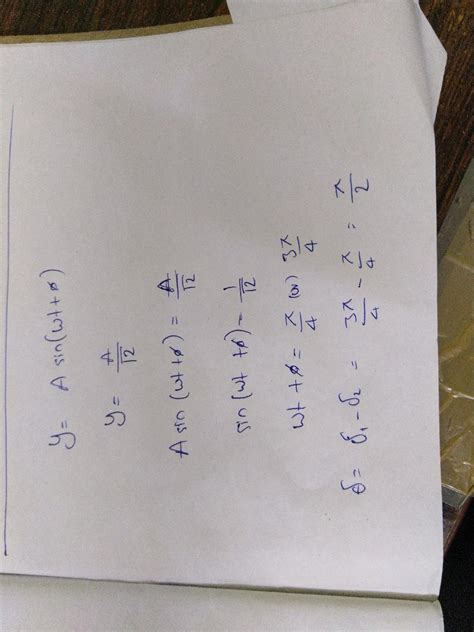 y = A sin(ωt+ø)
y = A/√2
A sin (ωt +ø) = A/√2
sin (ωt +ø) = 1/√2
ωt +ø = π/4 (or) 3π/4
δ = δ₁ - δ₂ = 3π/4 - π/4 = π/2